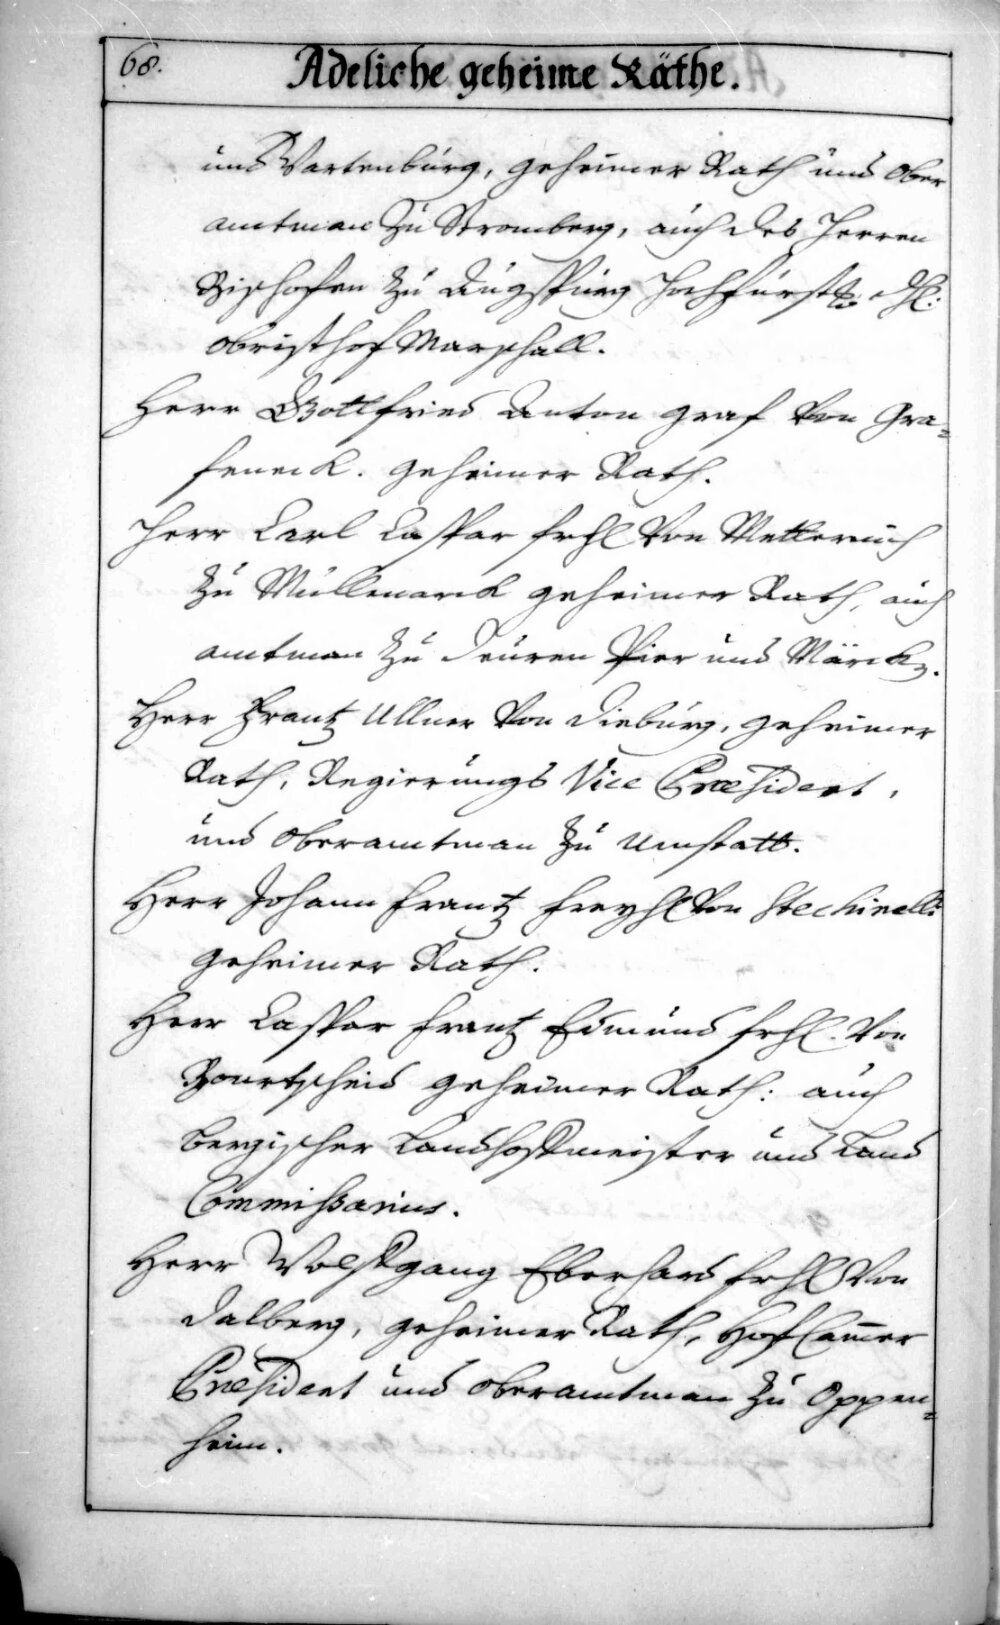 68.
Adeliche geheime Räthe.
und Wartenburg, geheimer Rath und Ober
amtman Zu Stromberg, auch des Herren
Bischofen Zu Augspurg Hochfürstl:
obristhof Marschall.
Herr Gottfried Anton graf Von Gra-
feneck. geheimer Rath.
Herr Carl Caspar frhl Von Metternich
Zu Müllenarck geheimer Rath, auch
amtman Zu Deuren Pier und Märcken.
Herr Frantz Ullner Von Dieburg, geheimer
Rath, Regierungs Vice Præsident,
und oberamtman Zu Umstatt.
Herr Johann Frantz freyhl Von Stechinelli
geheimer Rath.
Herr Caspar Frantz Edmund frhl. Von
Bourtscheid geheimer Rath: auch
bergischer Landhoffmeister und Land
Commissarius.
Herr Wolffgang Eberhard frhl Von
Dalberg, geheimer Rath, Hof Camer
Præsident und oberamtman Zu Oppen-
heim.